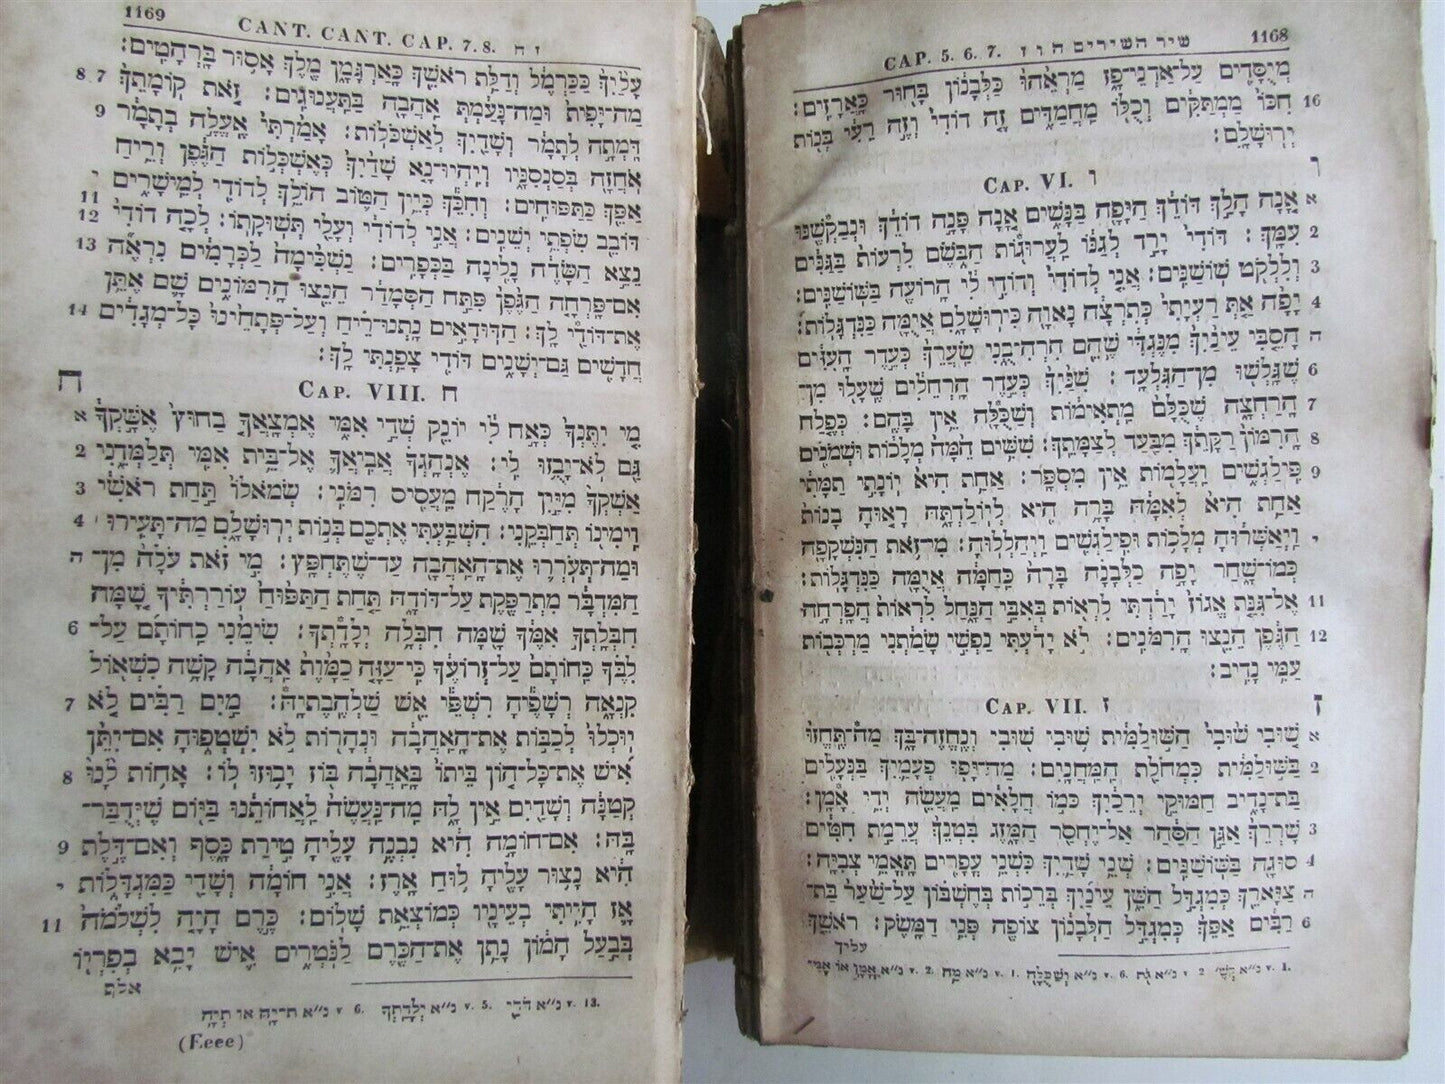 1168 שיר השירים ה ו ז CAP. 5. 6. 7.
מְיֻסָּדִים עַל־אַדְנֵי־פָז מַרְאֵהוּ כַּלְּבָנוֹן בָּחוּר כָּאֲרָזִים׃
16 חִכּוֹ מַמְתַקִּים וְכֻלּוֹ מַחֲמַדִּים זֶה דוֹדִי וְזֶה רֵעִי בְּנוֹת
יְרוּשָׁלָ͏ִם׃
ו CAP. VI. ו
א אָנָה הָלַךְ דּוֹדֵךְ הַיָּפָה בַּנָּשִׁים אָנָה פָּנָה דוֹדֵךְ וּנְבַקְשֶׁנּוּ
2 עִמָּךְ׃ דּוֹדִי יָרַד לְגַנּוֹ לַעֲרוּגוֹת הַבֹּשֶׂם לִרְעוֹת בַּגַּנִּים
3 וְלִלְקֹט שׁוֹשַׁנִּים׃ אֲנִי לְדוֹדִי וְדוֹדִי לִי הָרוֹעֶה בַּשּׁוֹשַׁנִּים׃
4 יָפָה אַתְּ רַעְיָתִי כְּתִרְצָה נָאוָה כִּירוּשָׁלָ͏ִם אֲיֻמָּה כַּנִּדְגָּלוֹת׃
ה הָסֵבִּי עֵינַיִךְ מִנֶּגְדִּי שֶׁהֵם הִרְהִיבֻנִי שַׂעְרֵךְ כְּעֵדֶר הָעִזִּים
6 שֶׁגָּלְשׁוּ מִן־הַגִּלְעָד׃ שִׁנַּיִךְ כְּעֵדֶר הָרְחֵלִים שֶׁעָלוּ מִן־
7 הָרַחְצָה שֶׁכֻּלָּם מַתְאִימוֹת וְשַׁכֻּלָה אֵין בָּהֶם׃ כְּפֶלַח
8 הָרִמּוֹן רַקָּתֵךְ מִבַּעַד לְצַמָּתֵךְ׃ שִׁשִּׁים הֵמָּה מְלָכוֹת וּשְׁמֹנִים
9 פִּילַגְשִׁים וַעֲלָמוֹת אֵין מִסְפָּר׃ אַחַת הִיא יוֹנָתִי תַמָּתִי
אַחַת הִיא לְאִמָּהּ בָּרָה הִיא לְיוֹלַדְתָּהּ רָאוּהָ בָנוֹת
י וַיְאַשְּׁרוּהָ מְלָכוֹת וּפִילַגְשִׁים וַיְהַלְלוּהָ׃ מִי־זֹאת הַנִּשְׁקָפָה
כְּמוֹ־שָׁחַר יָפָה כַלְּבָנָה בָּרָה כַּחַמָּה אֲיֻמָּה כַּנִּדְגָּלוֹת׃
11 אֶל־גִּנַּת אֱגוֹז יָרַדְתִּי לִרְאוֹת בְּאִבֵּי הַנָּחַל לִרְאוֹת הֲפָרְחָה
12 הַגֶּפֶן הֵנֵצוּ הָרִמֹּנִים׃ לֹא יָדַעְתִּי נַפְשִׁי שָׂמַתְנִי מַרְכְּבוֹת
עַמִּי נָדִיב׃
ז CAP. VII. ז
א שׁוּבִי שׁוּבִי הַשּׁוּלַמִּית שׁוּבִי שׁוּבִי וְנֶחֱזֶה־בָּךְ מַה־תֶּחֱזוּ
2 בַּשּׁוּלַמִּית כִּמְחֹלַת הַמַּחֲנָיִם׃ מַה־יָּפוּ פְעָמַיִךְ בַּנְּעָלִים
בַּת־נָדִיב חַמּוּקֵי יְרֵכַיִךְ כְּמוֹ חֲלָאִים מַעֲשֵׂה יְדֵי אָמָּן׃
3 שָׁרְרֵךְ אַגַּן הַסַּהַר אַל־יֶחְסַר הַמָּזֶג בִּטְנֵךְ עֲרֵמַת חִטִּים
4 סוּגָה בַּשּׁוֹשַׁנִּים׃ שְׁנֵי שָׁדַיִךְ כִּשְׁנֵי עֳפָרִים תָּאֳמֵי צְבִיָּה׃
ה צַוָּארֵךְ כְּמִגְדַּל הַשֵּׁן עֵינַיִךְ בְּרֵכוֹת בְּחֶשְׁבּוֹן עַל־שַׁעַר בַּת־
6 רַבִּים אַפֵּךְ כְּמִגְדַּל הַלְּבָנוֹן צוֹפֶה פְּנֵי דַמָּשֶׂק׃ רֹאשֵׁךְ
עליך
1169 CANT. CANT. CAP. 7. 8. ז ח
עָלַיִךְ כַּכַּרְמֶל וְדַלַּת רֹאשֵׁךְ כָּאַרְגָּמָן מֶלֶךְ אָסוּר בָּרְהָטִים׃
7 8 מַה־יָּפִית וּמַה־נָּעַמְתְּ אַהֲבָה בַּתַּעֲנוּגִים׃ זֹאת קוֹמָתֵךְ
9 דָּמְתָה לְתָמָר וְשָׁדַיִךְ לְאַשְׁכֹּלוֹת׃ אָמַרְתִּי אֶעֱלֶה בְתָמָר
אֹחֲזָה בְּסַנְסִנָּיו וְיִהְיוּ־נָא שָׁדַיִךְ כְּאֶשְׁכְּלוֹת הַגֶּפֶן וְרֵיחַ
י אַפֵּךְ כַּתַּפּוּחִים׃ וְחִכֵּךְ כְּיֵין הַטּוֹב הוֹלֵךְ לְדוֹדִי לְמֵישָׁרִים
11 12 דּוֹבֵב שִׂפְתֵי יְשֵׁנִים׃ אֲנִי לְדוֹדִי וְעָלַי תְּשׁוּקָתוֹ׃ לְכָה דוֹדִי
13 נֵצֵא הַשָּׂדֶה נָלִינָה בַּכְּפָרִים׃ נַשְׁכִּימָה לַכְּרָמִים נִרְאֶה
אִם־פָּרְחָה הַגֶּפֶן פִּתַּח הַסְּמָדַר הֵנֵצוּ הָרִמּוֹנִים שָׁם אֶתֵּן
14 אֶת־דּוֹדַי לָךְ׃ הַדּוּדָאִים נָתְנוּ־רֵיחַ וְעַל־פְּתָחֵינוּ כָּל־מְגָדִים
חֲדָשִׁים גַּם־יְשָׁנִים דּוֹדִי צָפַנְתִּי לָךְ׃
ח CAP. VIII. ח
א מִי יִתֶּנְךָ כְּאָח לִי יוֹנֵק שְׁדֵי אִמִּי אֶמְצָאֲךָ בַחוּץ אֶשָּׁקְךָ
2 גַּם לֹא־יָבֻזוּ לִי׃ אֶנְהָגְךָ אֲבִיאֲךָ אֶל־בֵּית אִמִּי תְּלַמְּדֵנִי
3 אַשְׁקְךָ מִיַּיִן הָרֶקַח מֵעֲסִיס רִמֹּנִי׃ שְׂמֹאלוֹ תַּחַת רֹאשִׁי
4 וִימִינוֹ תְּחַבְּקֵנִי׃ הִשְׁבַּעְתִּי אֶתְכֶם בְּנוֹת יְרוּשָׁלָ͏ִם מַה־תָּעִירוּ
ה וּמַה־תְּעֹרְרוּ אֶת־הָאַהֲבָה עַד־שֶׁתֶּחְפָּץ׃ מִי זֹאת עֹלָה מִן־
הַמִּדְבָּר מִתְרַפֶּקֶת עַל־דּוֹדָהּ תַּחַת הַתַּפּוּחַ עוֹרַרְתִּיךָ שָׁמָּה
6 חִבְּלָתְךָ אִמֶּךָ שָׁמָּה חִבְּלָה יְלָדָתְךָ׃ שִׂימֵנִי כַחוֹתָם עַל־
לִבֶּךָ כַּחוֹתָם עַל־זְרוֹעֶךָ כִּי־עַזָּה כַמָּוֶת אַהֲבָה קָשָׁה כִשְׁאוֹל
7 קִנְאָה רְשָׁפֶיהָ רִשְׁפֵּי אֵשׁ שַׁלְהֶבֶתְיָה׃ מַיִם רַבִּים לֹא
יוּכְלוּ לְכַבּוֹת אֶת־הָאַהֲבָה וּנְהָרוֹת לֹא יִשְׁטְפוּהָ אִם־יִתֵּן
8 אִישׁ אֶת־כָּל־הוֹן בֵּיתוֹ בָּאַהֲבָה בּוֹז יָבוּזוּ לוֹ׃ אָחוֹת לָנוּ
קְטַנָּה וְשָׁדַיִם אֵין לָהּ מַה־נַּעֲשֶׂה לַאֲחוֹתֵנוּ בַּיּוֹם שֶׁיְּדֻבַּר־
9 בָּהּ׃ אִם־חוֹמָה הִיא נִבְנֶה עָלֶיהָ טִירַת כָּסֶף וְאִם־דֶּלֶת
י הִיא נָצוּר עָלֶיהָ לוּחַ אָרֶז׃ אֲנִי חוֹמָה וְשָׁדַי כַּמִּגְדָּלוֹת
11 אָז הָיִיתִי בְעֵינָיו כְּמוֹצְאֵת שָׁלוֹם׃ כֶּרֶם הָיָה לִשְׁלֹמֹה
בְּבַעַל הָמוֹן נָתַן אֶת־הַכֶּרֶם לַנֹּטְרִים אִישׁ יָבִא בְּפִרְיוֹ
אלף
(Eeee)